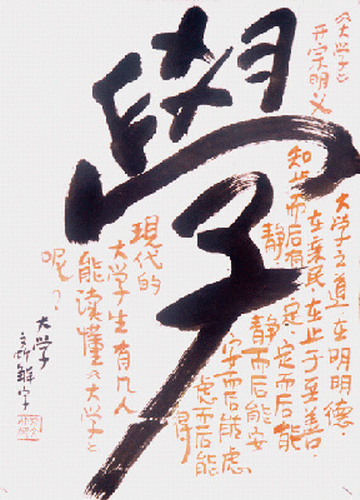 學
《大学》
开宗明义
大学之道.在明明德.
在亲民.在止于至善.
知止而后有定.定而后能
静
静而后能安
安而后能虑
虑而后能
得
現代的
大学生有几人
能读懂《大学》
呢?
大學字
解字